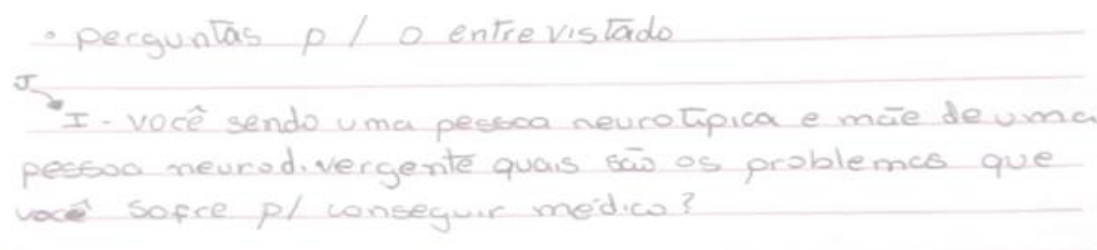 • perguntas p/ o entrevistado
J
I - você sendo uma pessoa neurotípica e mãe de uma
pessoa neurodivergente quais são os problemas que
você sofre p/ conseguir médico?